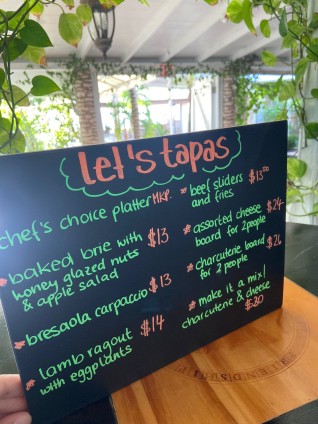 let's tapas
chef's choice platter MKP.
* baked brie with
honey glazed nuts
& apple salad $13
* bresaola carpaccio $13
* lamb ragout
with eggplants $14
* beef sliders
and fries $13.00
* assorted cheese
board for 2 people $24
* charcuterie board
for 2 people $26
* make it a mix!
charcuterie & cheese
$30